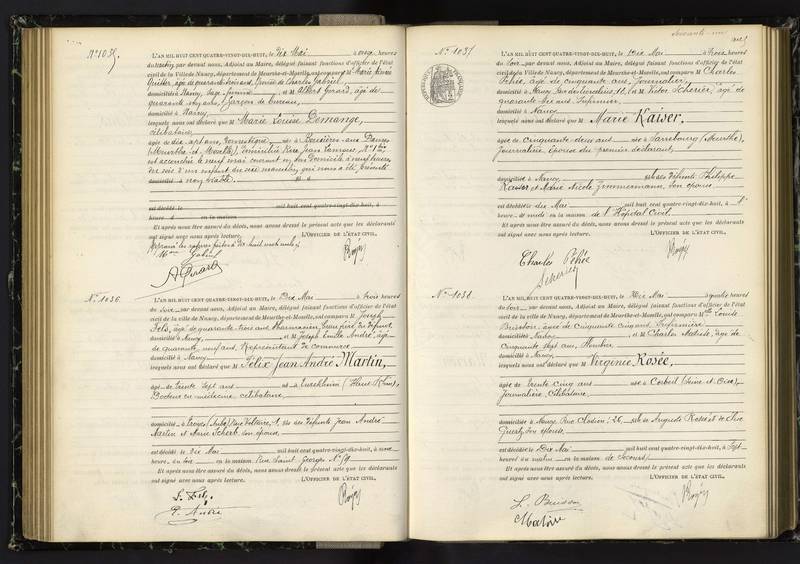 N° 1035.
L'AN MIL HUIT CENT QUATRE-VINGT-DIX-HUIT, le Dix Mai à onze heures
du matin par devant Nous, Adjoint au Maire, délégué faisant fonctions d'officier de l'état
civil de la Ville de Nancy, département de Meurthe-et-Moselle, ont comparu M Marie
âgé de quarante ans, Charles Gabriel,
domicilié à Nancy, Sage femme et M Albert Gérard, âgé de
quarante ans, Garçon de bureau,
domicilié à Nancy
lesquels nous ont déclaré que M Marie Louise Demange,
célibataire,
âgée de dix sept ans, domestique, née à Rosières-aux-Salines
(Meurthe-et-Moselle), domiciliée Rue Jean Lamour, N°
est accouchée le neuf mai courant en son domicile à neuf heures
du soir d'un enfant du sexe masculin qui nous a été présenté
domicilié à non viable.
est décédé le mil huit cent quatre-vingt-dix-huit, à
heure d en la maison
Et après nous être assuré du décès, nous avons dressé le présent acte que les déclarants
ont signé avec nous après lecture. L'OFFICIER DE L'ÉTAT CIVIL,
Gabriel
A Gérard
N° 1036.
L'AN MIL HUIT CENT QUATRE-VINGT-DIX-HUIT, le Dix Mai à trois heures
du soir par devant Nous, Adjoint au Maire, délégué faisant fonctions d'officier de l'état
civil de la ville de Nancy, département de Meurthe-et-Moselle, ont comparu M Joseph
âgé de quarante trois ans, Pharmacien, du défunt
domicilié à Nancy, et M Joseph Emile André, âgé
de quarante neuf ans, Représentant de commerce
domicilié à Nancy
lesquels nous ont déclaré que M Félix Jean André Martin,
âgé de trente sept ans né à (Haut Rhin),
Docteur en médecine, célibataire,
domicilié à Troyes (Aube) Rue Voltaire, 1, fils des défunts Jean André
Martin et Marie Scherb son épouse,
est décédé le dix Mai mil huit cent quatre-vingt-dix-huit, à une
heure du soir en la maison Rue Saint Georges N°
Et après nous être assuré du décès, nous avons dressé le présent acte que les déclarants
ont signé avec nous après lecture. L'OFFICIER DE L'ÉTAT CIVIL,
André
Soixante-un
N° 1037
L'AN MIL HUIT CENT QUATRE-VINGT-DIX-HUIT, le Dix Mai à trois heures
du soir par devant Nous, Adjoint au Maire, délégué faisant fonctions d'officier de l'état
civil de la Ville de Nancy, département de Meurthe-et-Moselle, ont comparu M Charles
âgé de cinquante ans, Journalier,
domicilié à Nancy et M Victor Scherier, âgé de
quarante six ans, Infirmier
domicilié à Nancy
lesquels nous ont déclaré que M Marie Kaiser,
âgée de cinquante deux ans née à Sarrebourg (Meurthe),
Journalière, épouse du premier déclarant,
domiciliée à Nancy fille des défunts Philippe
Kaiser et Marie Nicole Zimmermann, son épouse
est décédée le dix Mai mil huit cent quatre-vingt-dix-huit, à 1
heure de midi en la maison de l'Hôpital Civil
Et après nous être assuré du décès, nous avons dressé le présent acte que les déclarants
ont signé avec nous après lecture. L'OFFICIER DE L'ÉTAT CIVIL,
Charles
Scherier
N° 1038.
L'AN MIL HUIT CENT QUATRE-VINGT-DIX-HUIT, le Dix Mai à quatre heures
du soir par devant Nous, Adjoint au Maire, délégué faisant fonctions d'officier de l'état
civil de la ville de Nancy, département de Meurthe-et-Moselle, ont comparu M Louise
âgée de Cinquante Cinq ans, Infirmière
domiciliée à Nancy et M Charles âgé de
Cinquante sept ans,
domicilié à Nancy,
lesquels nous ont déclaré que M Virginie Rosée,
âgée de trente cinq ans née à Corbeil (Seine et Oise),
Journalière, Célibataire,
domiciliée à Nancy, Rue Clodion, 26, fille de Auguste Rosée et de
son épouse
est décédée le Dix Mai mil huit cent quatre-vingt-dix-huit, à sept
heures du matin en la maison de Secours
Et après nous être assuré du décès, nous avons dressé le présent acte que les déclarants
ont signé avec nous après lecture. L'OFFICIER DE L'ÉTAT CIVIL,